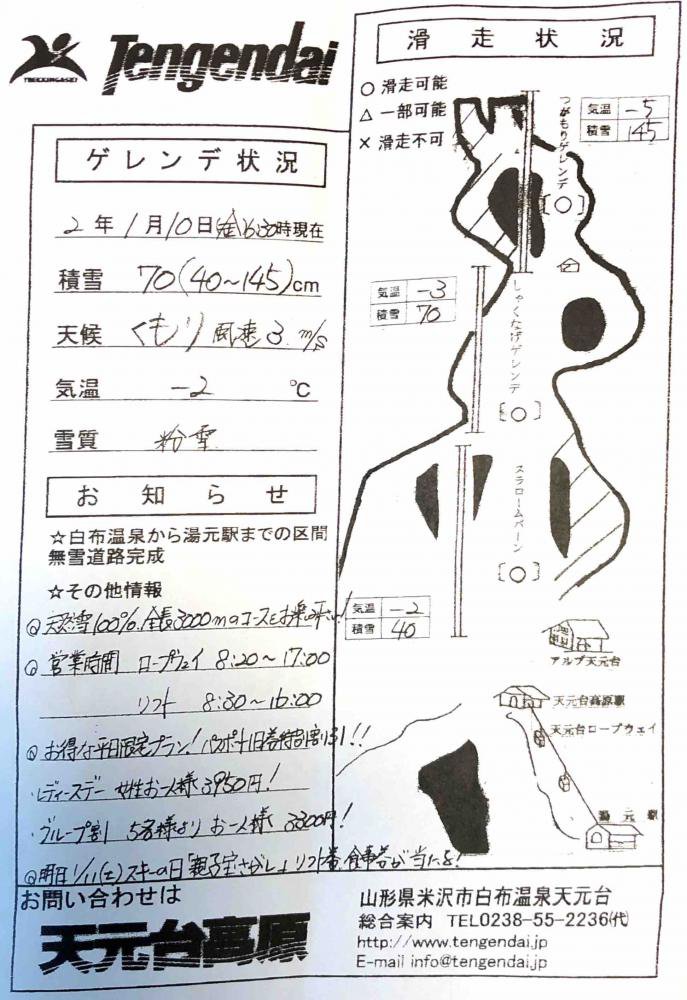 TREKKING&SKI
Tengendai
ゲレンデ状況
2年1月10日(金)6:30時現在
積雪 70(40~145)cm
天候 くもり 風速3 m/s
気温 -2 ℃
雪質 粉雪
お知らせ
☆白布温泉から湯元駅までの区間
無雪道路完成
☆その他情報
◎天然雪100%.全長3000mのコースをお楽しみ下さい!
◎営業時間 ロープウェイ 8:20~17:00
リフト 8:30~16:00
◎お得な平日限定プラン!パスポート1日券特別割引!!
・レディースデー 女性お一人様3950円!
・グループ割 5名様より お一人様 3300円!
◎明日1/11(土)スキーの日「親子宝さがし」リフト券、食事券が当たる!
滑走状況
○ 滑走可能
△ 一部可能
× 滑走不可
気温 -5
積雪 145
つがもりゲレンデ
[○]
気温 -3
積雪 70
しゃくなげゲレンデ
[○]
スラロームバーン
[○]
気温 -2
積雪 40
アルブ天元台
天元台高原駅
天元台ロープウェイ
湯元駅
お問い合わせは
天元台高原
山形県米沢市白布温泉天元台
総合案内 TEL0238-55-2236(代)
http://www.tengendai.jp
E-mail info@tengendai.jp